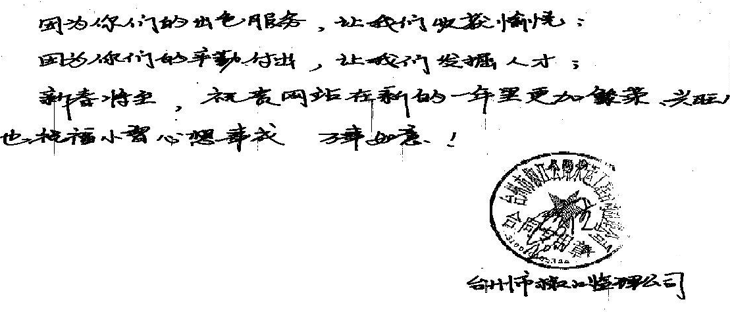 因为你们的出色服务，让我们收获愉悦；
因为你们的辛勤付出，让我们发掘人才；
新春将至，祝贵网站在新的一年里更加繁荣、兴旺
也祝福小 心想事成 万事如意！
合同专用章
台州市 监理公司